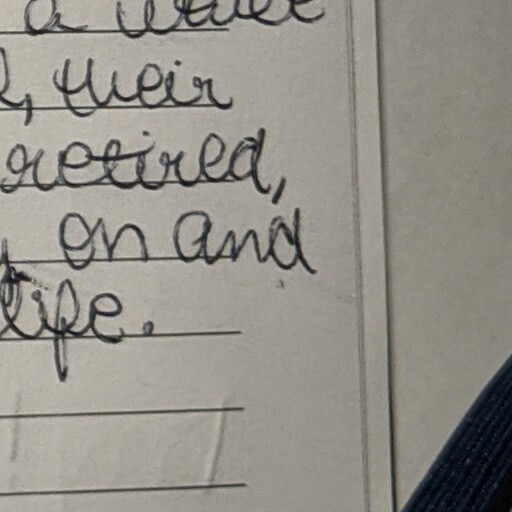 a
, their
retired,
on and
life.